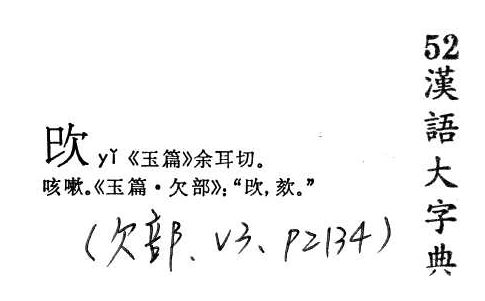 52漢語大字典
yǐ《玉篇》余耳切。
咳嗽。《玉篇·欠部》：“，欬。”
(欠部、V3、P2134)